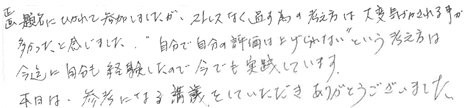 題名にひかれて参加しましたが、ストレスなく過す為の考え方は大変気づかされる事が
多かったと感じました。"自分で自分の評価は上げられない"という考え方は
今迄に自分も経験したので今でも実践しています。
本日は、参考になる講義をしていただきありがとうございました。